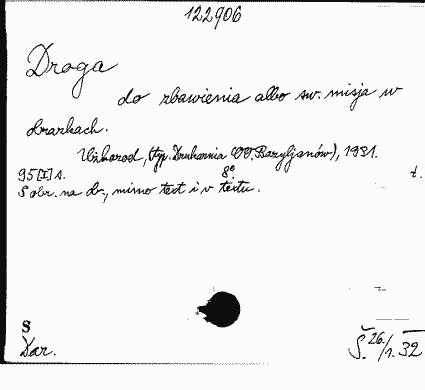 122906
Droga
do zbawienia albo sw. misja w
obrazkach.
Užhorod, (typ. Drukarnia OO. Bazyljanów), 1931.
95[I] s. 8° t.
S obr. na ob., mimo text i v textu.
S
Dar. Š. 26./1. 32